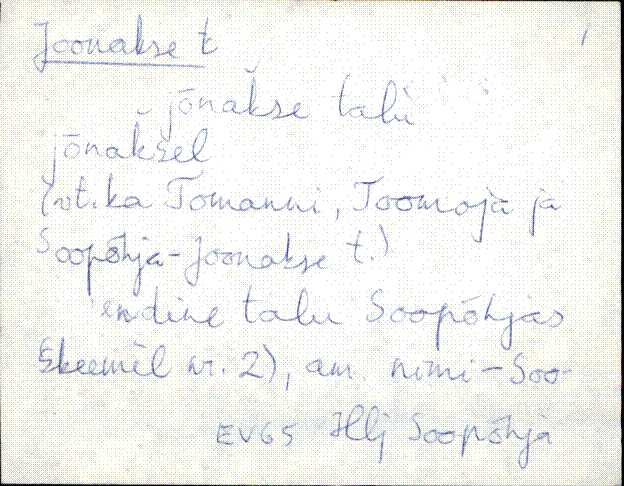 Joonakse t 1
jōnakše talu
jōnakšel
(vt. ka Tomanni, Toomoja ja
Soopõhja-Joonakse t.)
endine talu Soopõhjas
Skeemil nr. 2), am. nimi - Soo-
EV65 Hlj Soopõhja